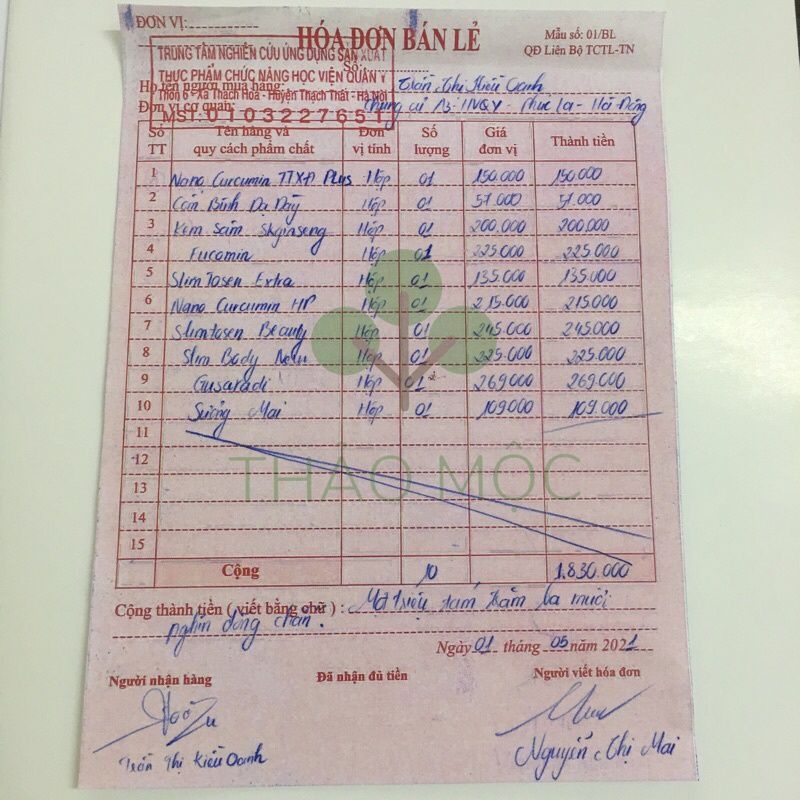 ĐƠN VỊ:
HÓA ĐƠN BÁN LẺ
Mẫu số: 01/BL
QĐ Liên Bộ TCTL-TN
TRUNG TÂM NGHIÊN CỨU ỨNG DỤNG SẢN XUẤT
THỰC PHẨM CHỨC NĂNG HỌC VIỆN QUÂN Y
Thôn 6 - Xã Thạch Hoà - Huyện Thạch Thất - Hà Nội
MST: 0103227651
Số:
Họ tên người mua hàng: Trần Thị Kiều Oanh
Đơn vị cơ quan: Chung cư - Phúc La - Hà Đông
Số TT Tên hàng và quy cách phẩm chất Đơn vị tính Số lượng Giá đơn vị Thành tiền
1 Nano Curcumin TTXP Plus Hộp 01 150.000 150.000
2 Cao Bình Dạ Dày Hộp 01 57.000 57.000
3 Kem Sâm Hộp 01 200.000 200.000
4 Fucomin Hộp 01 225.000 225.000
5 Slim Tosen Extra Hộp 01 135.000 135.000
6 Nano Curcumin HP Hộp 01 215.000 215.000
7 Slimtosen Beauty Hộp 01 245.000 245.000
8 Slim Body New Hộp 01 225.000 225.000
9 Gusaradi Hộp 01 269.000 269.000
10 Sương Mai Hộp 01 109.000 109.000
11
12
THẢO MỘC
13
14
15
Cộng 10 1.830.000
Cộng thành tiền ( viết bằng chữ ) : Một triệu tám trăm ba mươi
nghìn đồng chẵn.
Ngày 01 tháng 05 năm 2021
Người nhận hàng Đã nhận đủ tiền Người viết hóa đơn
Trần Thị Kiều Oanh
Nguyễn Thị Mai